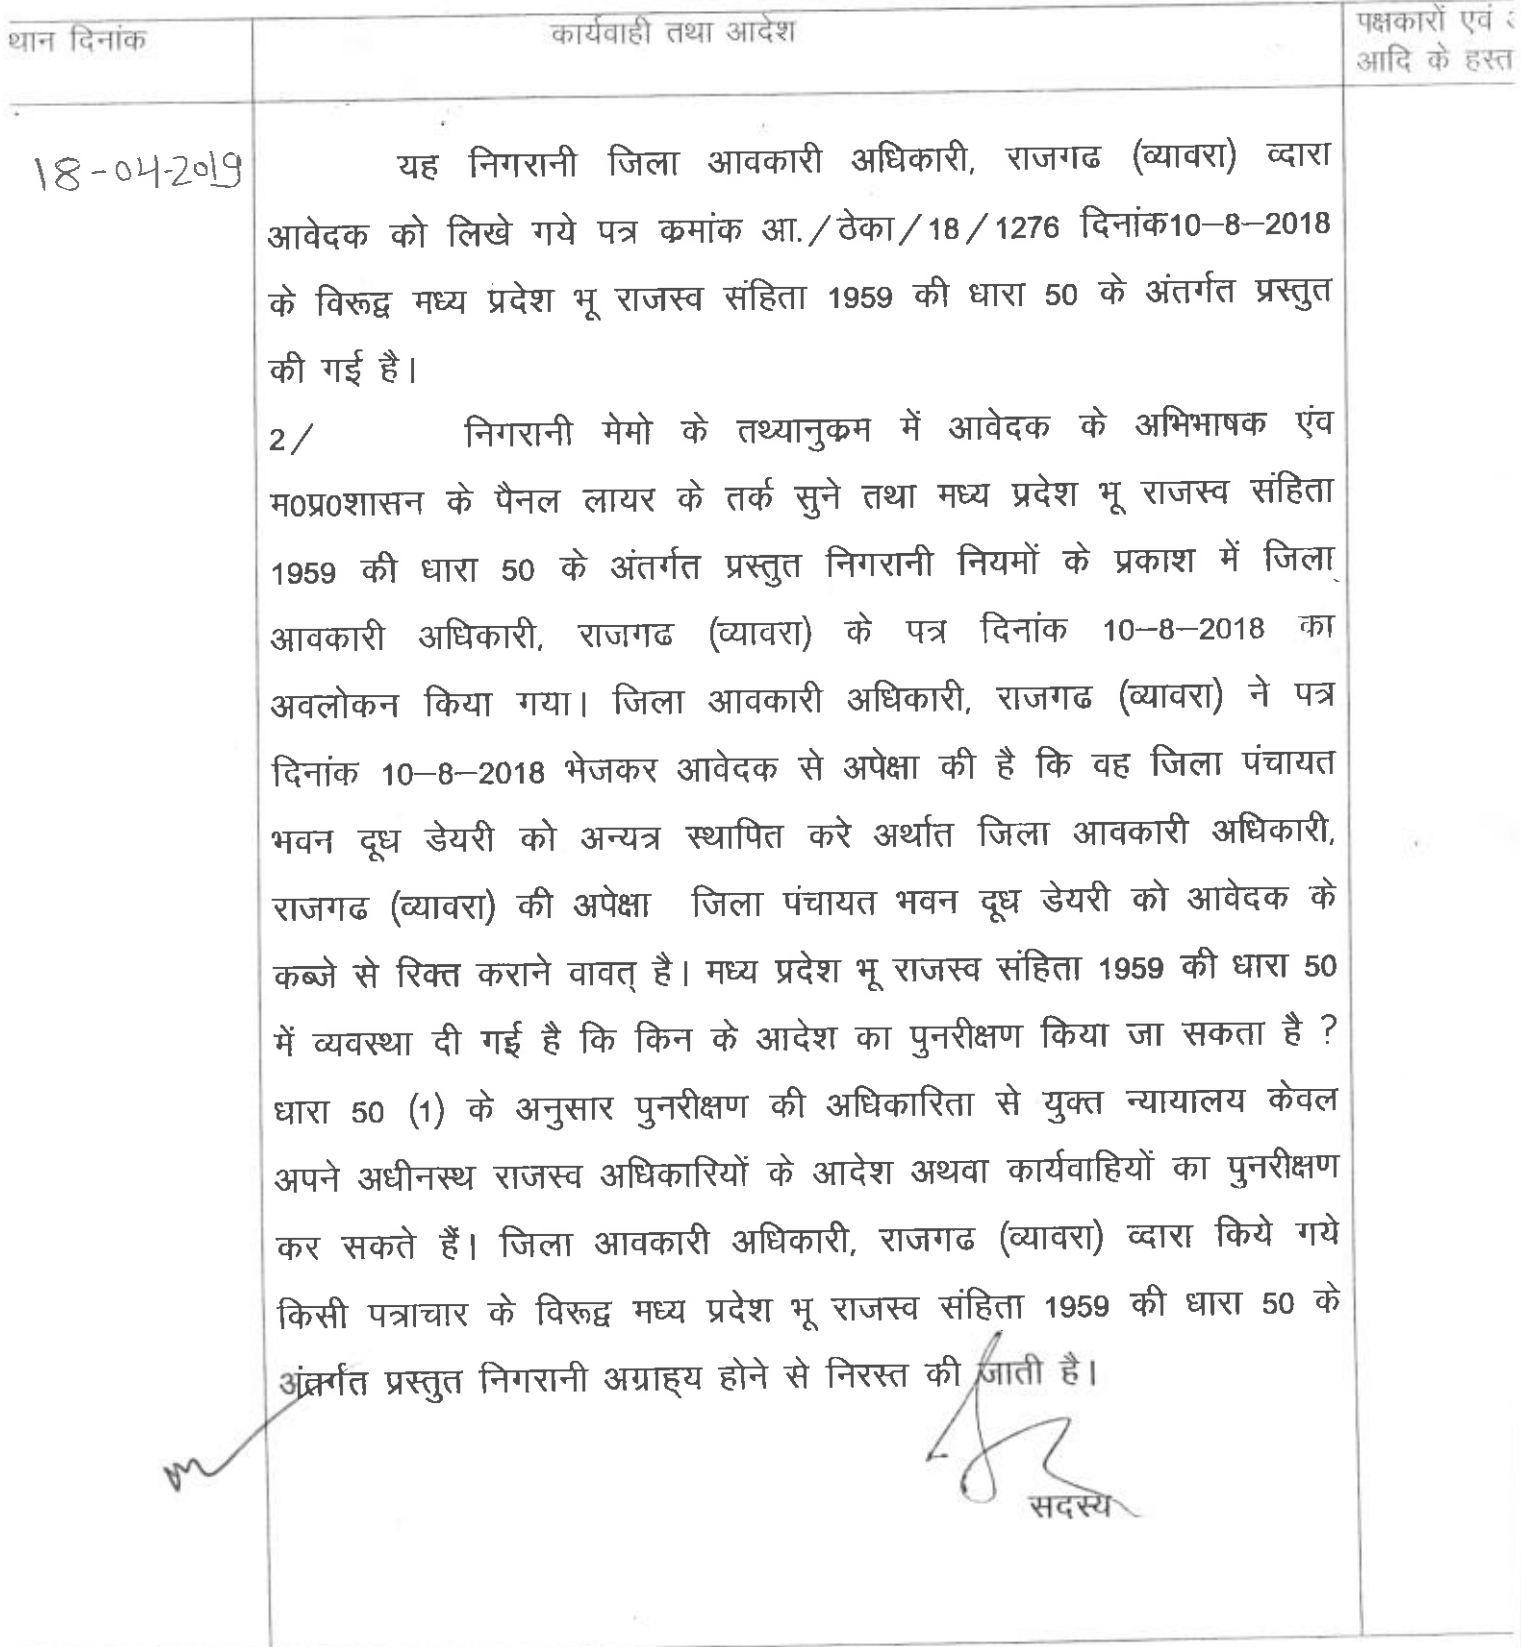 थान दिनांक
कार्यवाही तथा आदेश
पक्षकारों एवं
आदि के हस्त
18-04-2019
यह निगरानी जिला आवकारी अधिकारी, राजगढ (व्यावरा) व्दारा
आवेदक को लिखे गये पत्र क्रमांक आ./ठेका/18/1276 दिनांक10–8–2018
के विरूद्व मध्य प्रदेश भू राजस्व संहिता 1959 की धारा 50 के अंतर्गत प्रस्तुत
की गई है।
2/ निगरानी मेमो के तथ्यानुक्रम में आवेदक के अभिभाषक एंव
म0प्र0शासन के पैनल लायर के तर्क सुने तथा मध्य प्रदेश भू राजस्व संहिता
1959 की धारा 50 के अंतर्गत प्रस्तुत निगरानी नियमों के प्रकाश में जिला
आवकारी अधिकारी, राजगढ (व्यावरा) के पत्र दिनांक 10–8–2018 का
अवलोकन किया गया। जिला आवकारी अधिकारी, राजगढ (व्यावरा) ने पत्र
दिनांक 10–8–2018 भेजकर आवेदक से अपेक्षा की है कि वह जिला पंचायत
भवन दूध डेयरी को अन्यत्र स्थापित करे अर्थात जिला आवकारी अधिकारी,
राजगढ (व्यावरा) की अपेक्षा जिला पंचायत भवन दूध डेयरी को आवेदक के
कब्जे से रिक्त कराने वावत् है। मध्य प्रदेश भू राजस्व संहिता 1959 की धारा 50
में व्यवस्था दी गई है कि किन के आदेश का पुनरीक्षण किया जा सकता है ?
धारा 50 (1) के अनुसार पुनरीक्षण की अधिकारिता से युक्त न्यायालय केवल
अपने अधीनस्थ राजस्व अधिकारियों के आदेश अथवा कार्यवाहियों का पुनरीक्षण
कर सकते हैं। जिला आवकारी अधिकारी, राजगढ (व्यावरा) व्दारा किये गये
किसी पत्राचार के विरूद्व मध्य प्रदेश भू राजस्व संहिता 1959 की धारा 50 के
अंतर्गत प्रस्तुत निगरानी अग्राह्य होने से निरस्त की जाती है।
सदस्य